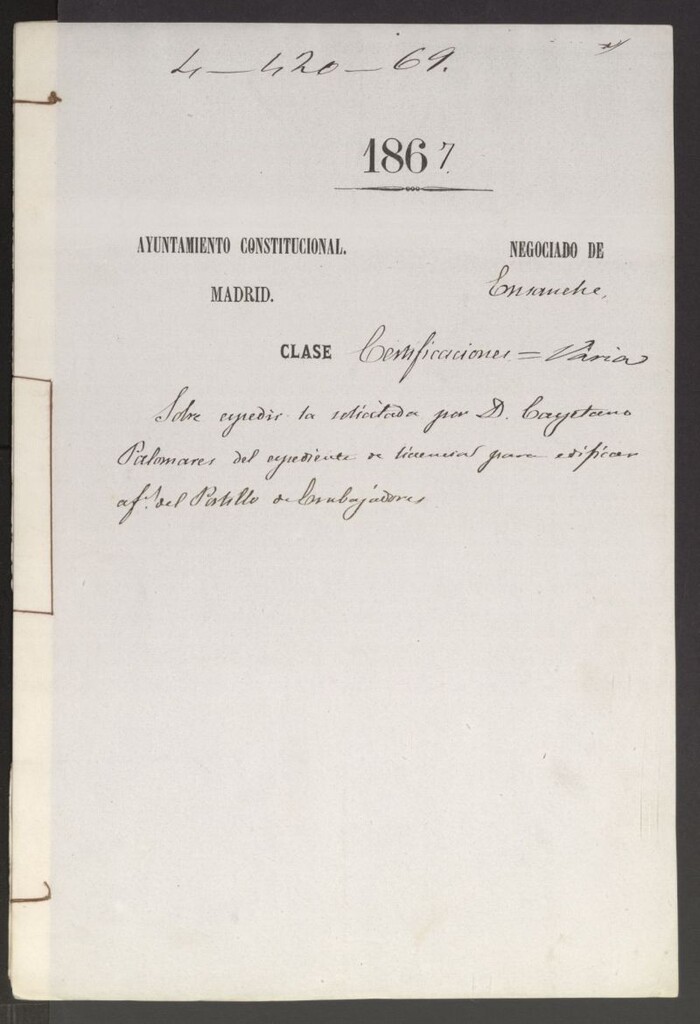 4-420-69.
1867.
AYUNTAMIENTO CONSTITUCIONAL.
MADRID.
NEGOCIADO DE
Ensanche.
CLASE Certificaciones = Varia
Sobre expedir la solicitada por D. Cayetano
Palomares del expediente de licencia para edificar
af.ª del Portillo de Embajadores